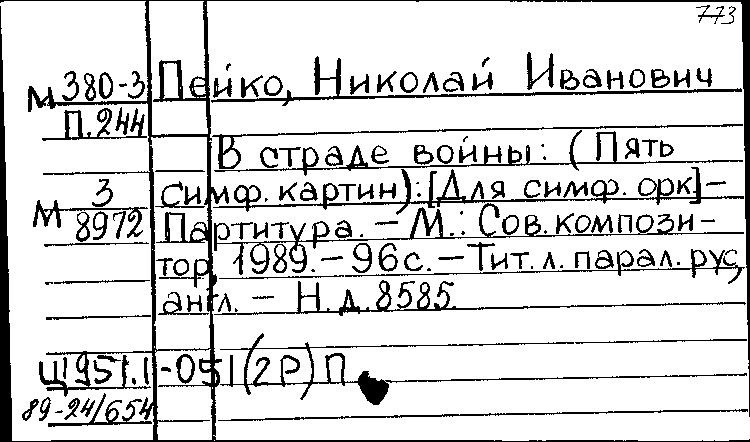 773
М 380-3 Пейко, Николай Иванович
П.244
В страде войны: (Пять
М 3 симф. картин): [Для симф. орк] –
8972 Партитура. – М.: Сов. компози-
тор, 1989. – 96с. – Тит. л. парал. рус,
англ. – Н. д. 8585.
Щ951.1-051(2Р)П
89-24/654